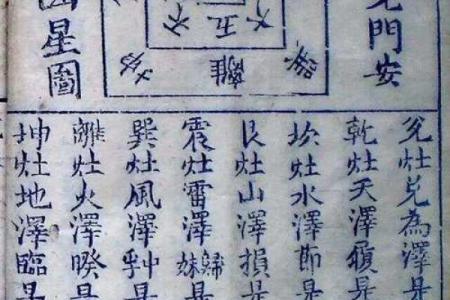 門安
離
星圖
兌灶兌為澤是
乾灶天澤履是
坎灶水澤節是
艮灶山澤損是
震灶雷澤歸妹是
巽灶風澤中孚是
離灶火澤睽是
坤灶地澤臨是